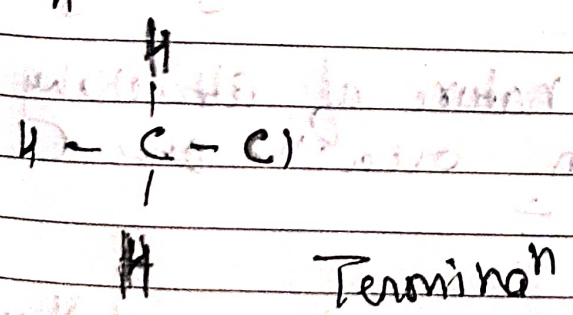 H
H - C - Cl
H
Terminaⁿ